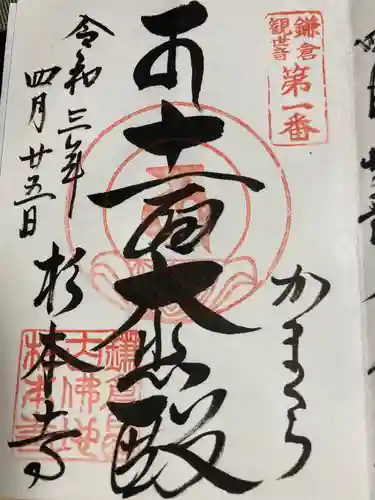 鎌倉
観世音
第一番
かまくら
十一面大悲殿
令和三年
四月廿五日
杉本寺
鎌倉
大佛地
杉本寺